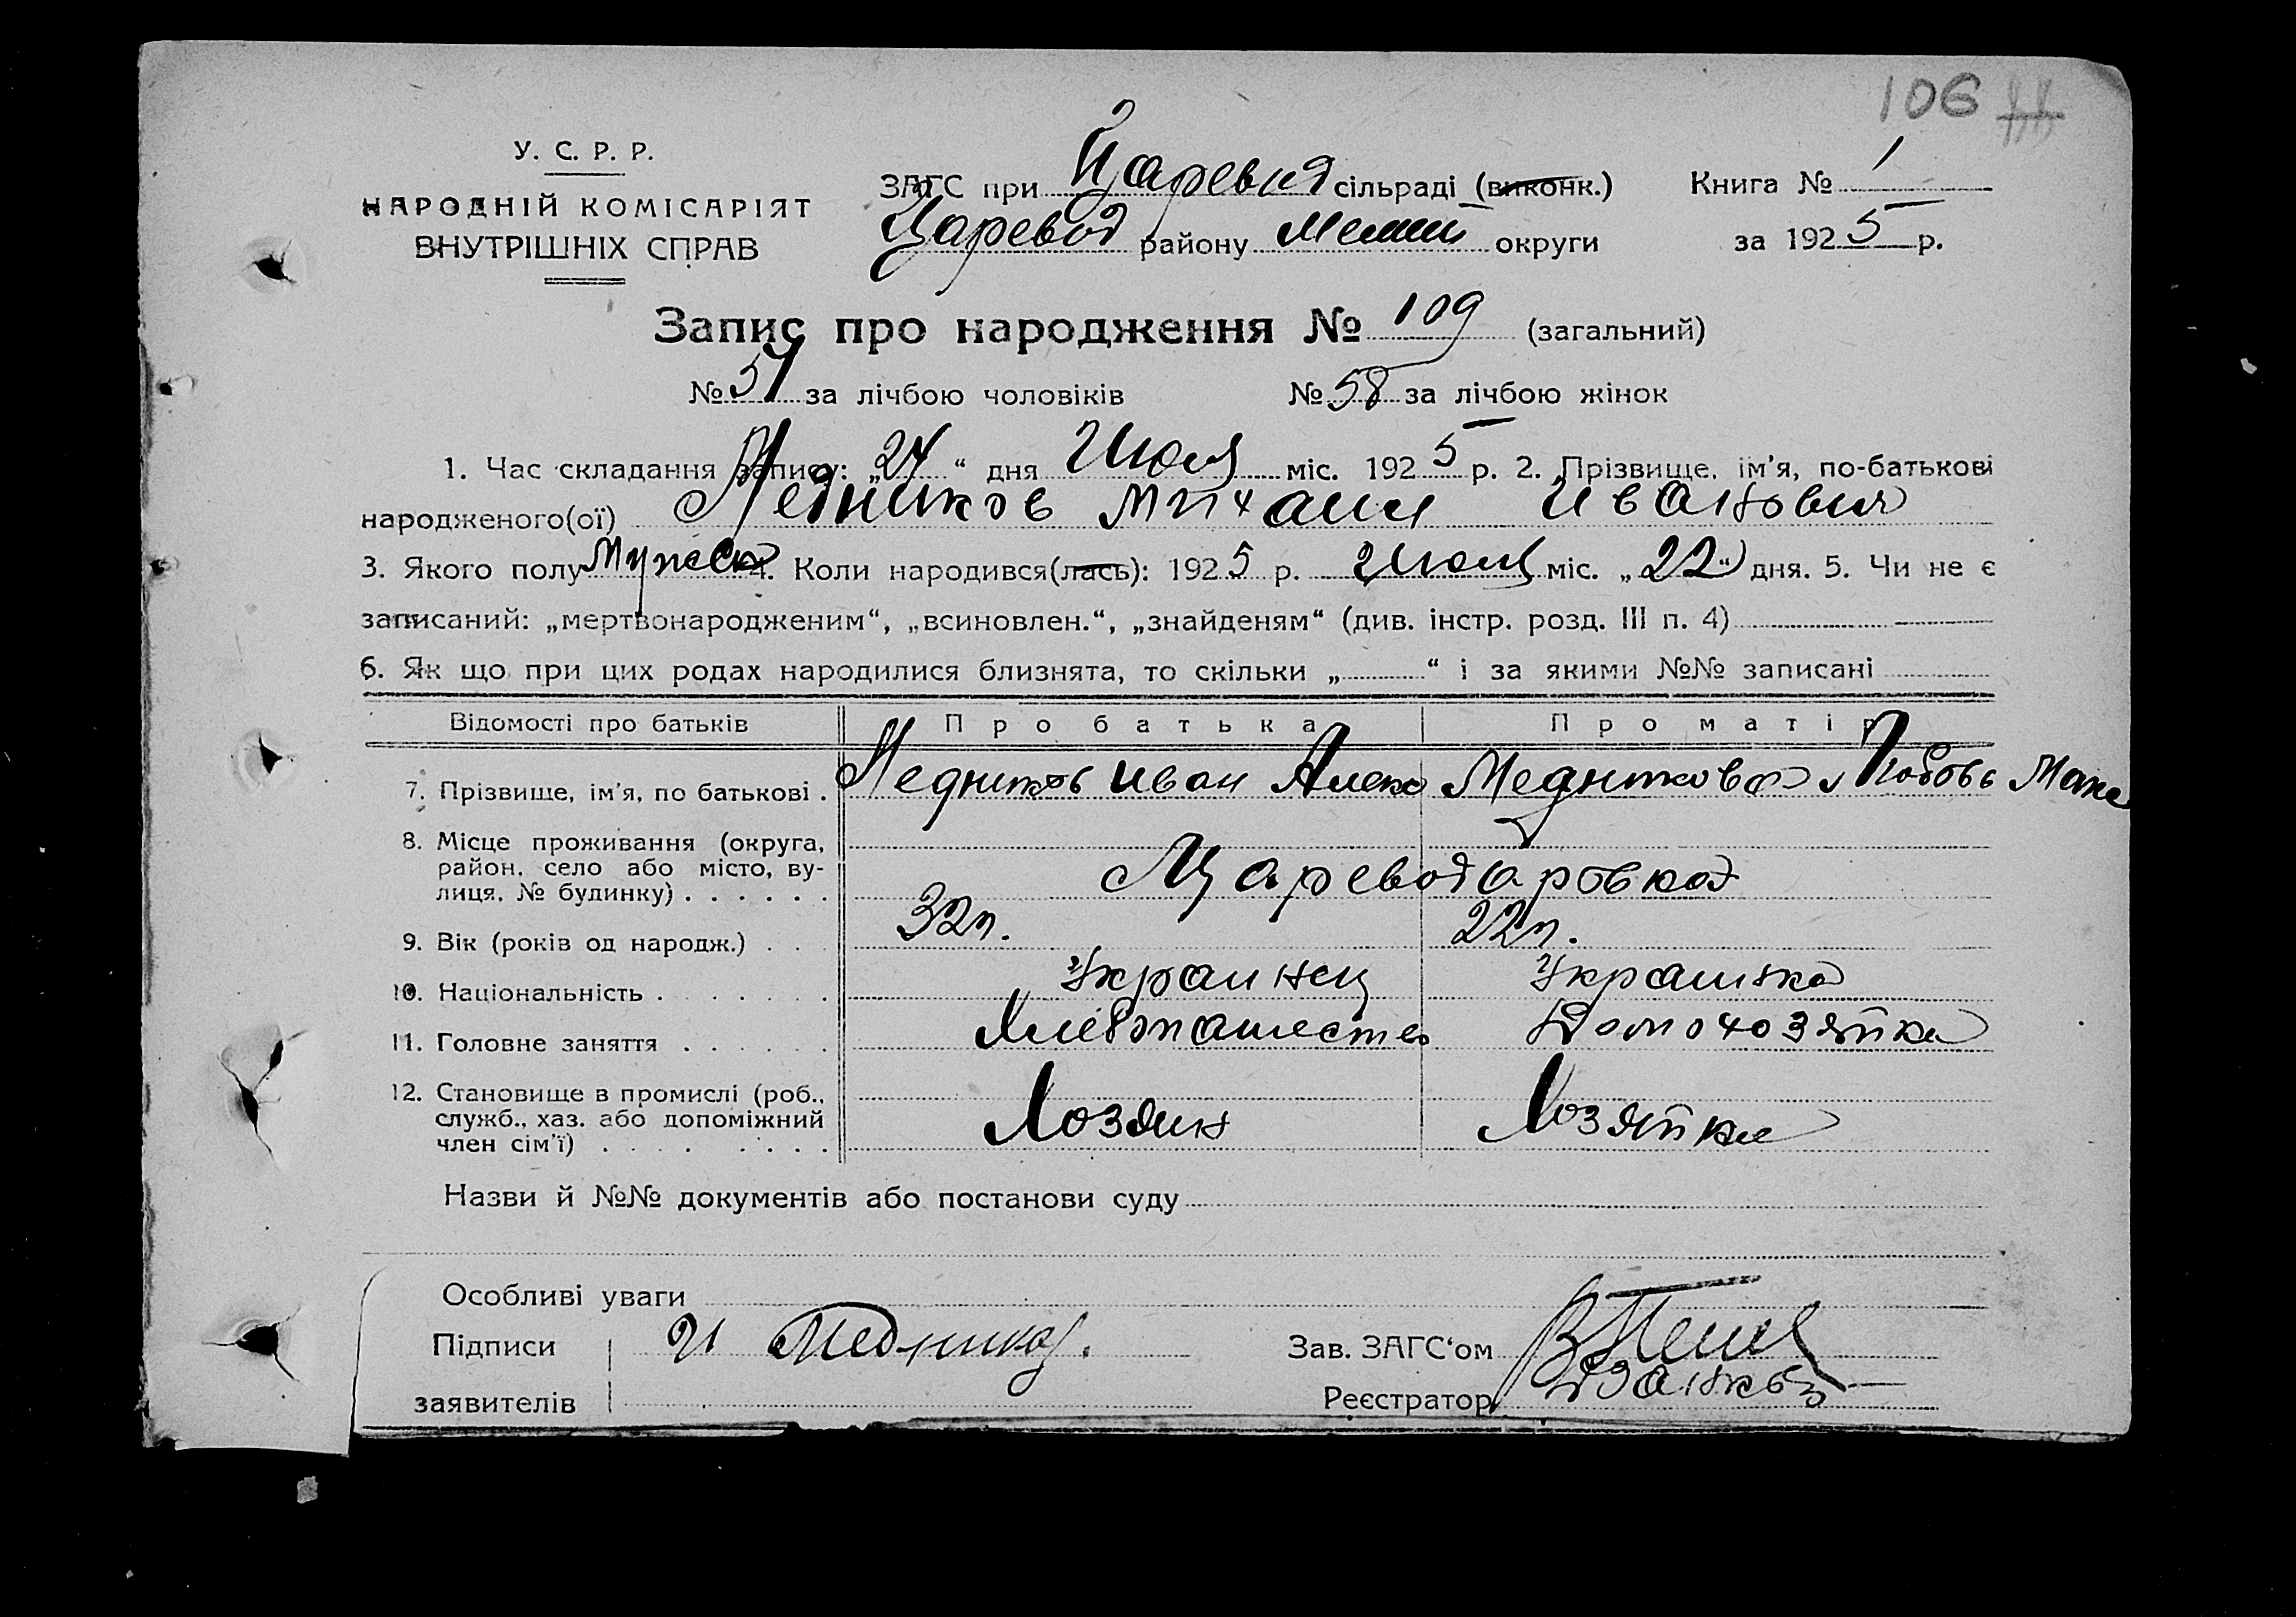 106
У. С. Р. Р.
НАРОДНІЙ КОМІСАРІЯТ
ВНУТРІШНІХ СПРАВ
ЗАГС при сільраді (виконк.)
Царевод району округи
Книга № 1
за 1925 р.
Запис про народження № 109 (загальний)
№ 51 за лічбою чоловіків № 58 за лічбою жінок
1. Час складання запису: „24“ дня Июля міс. 1925 р. 2. Прізвище, ім'я, по-батькові
народженого(ої) Медников Михаил Иванович
3. Якого полу Мужск 4. Коли народився(лась): 1925 р. Июля міс. „22“ дня. 5. Чи не є
записаний: „мертвонародженим“, „всиновлен.“, „знайденям“ (див. інстр. розд. III п. 4)
6. Як що при цих родах народилися близнята, то скільки „ “ і за якими №№ записані
Відомості про батьків Про батька Про матір
7. Прізвище, ім'я, по батькові . Медников Иван Алекс Медникова Любовь Макс
8. Місце проживання (округа,
район, село або місто, ву-
лиця, № будинку) . . . . . . Цареводаровка
9. Вік (років од народж.) . . 32 л. 22 л.
10. Національність . . . . . . . Украинец Украинка
11. Головне заняття . . . . . . Хлебопашество Домохозяйка
12. Становище в промислі (роб.,
служб., хаз. або допоміжний
член сім'ї) . . . . . . . . Хозяин Хозяйка
Назви й №№ документів або постанови суду
Особливі уваги
Підписи И Медников. Зав. ЗАГС'ом
заявителів Реєстратор